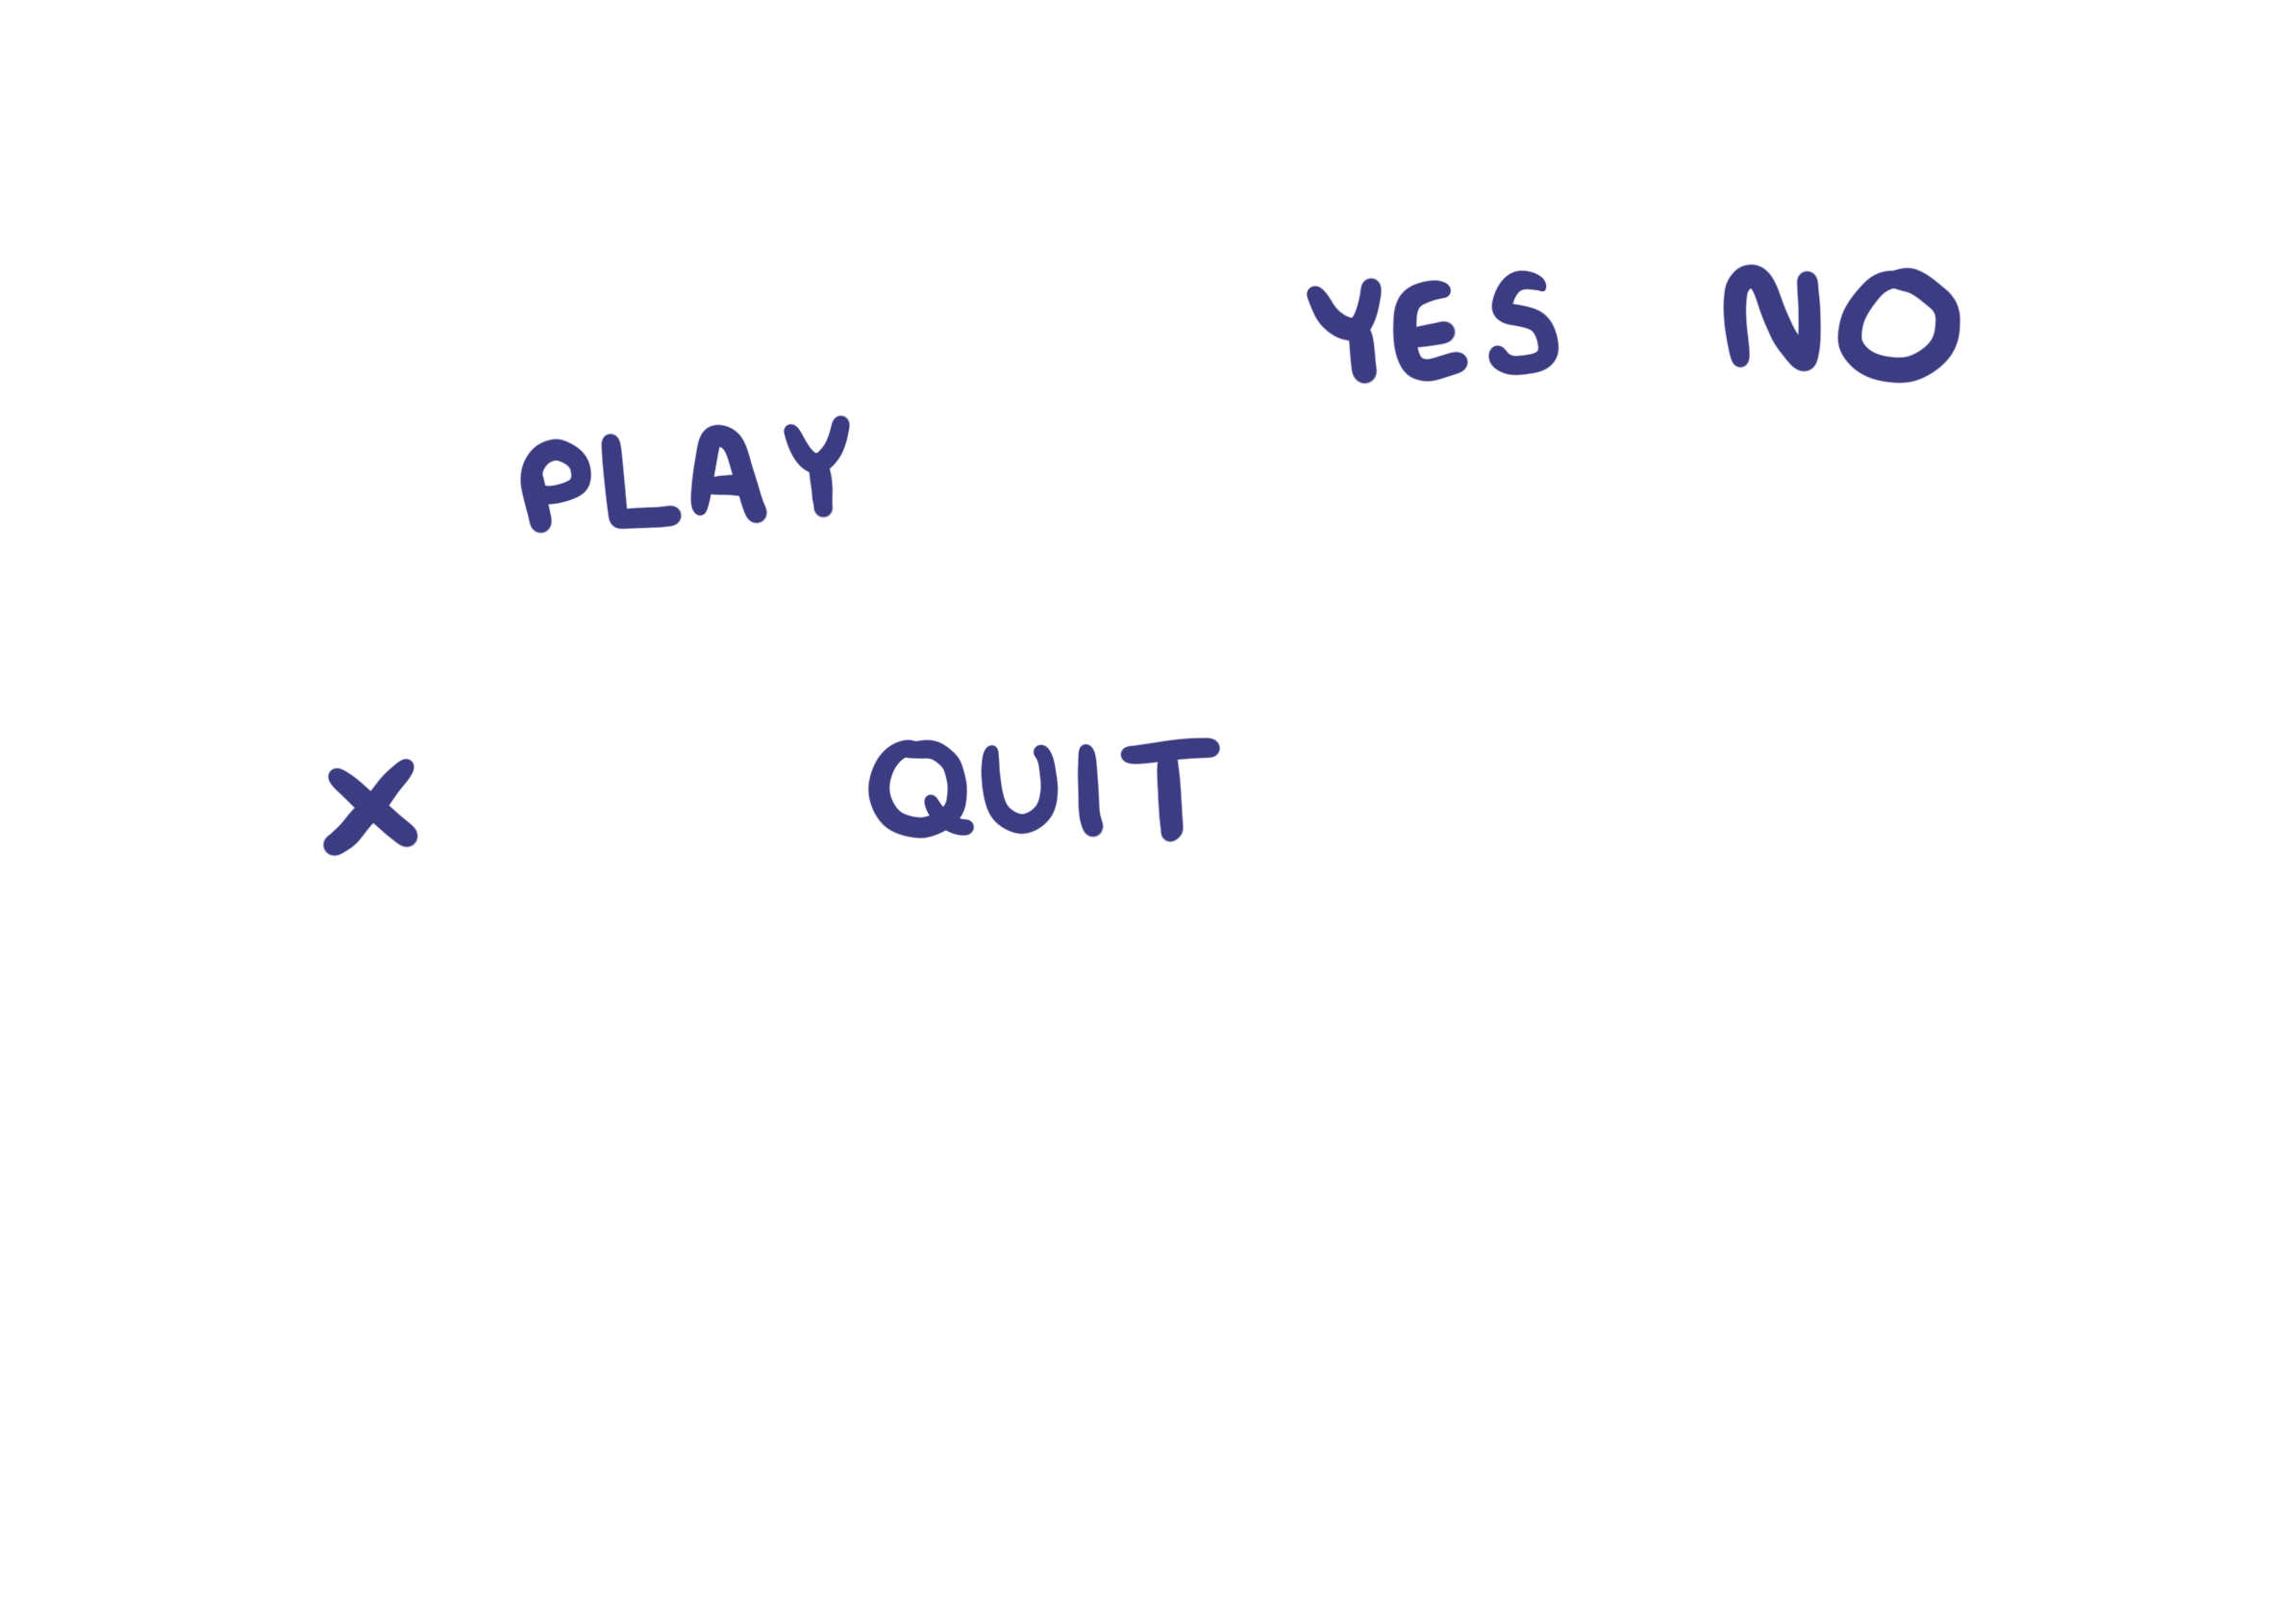 YES NO
PLAY
X QUIT